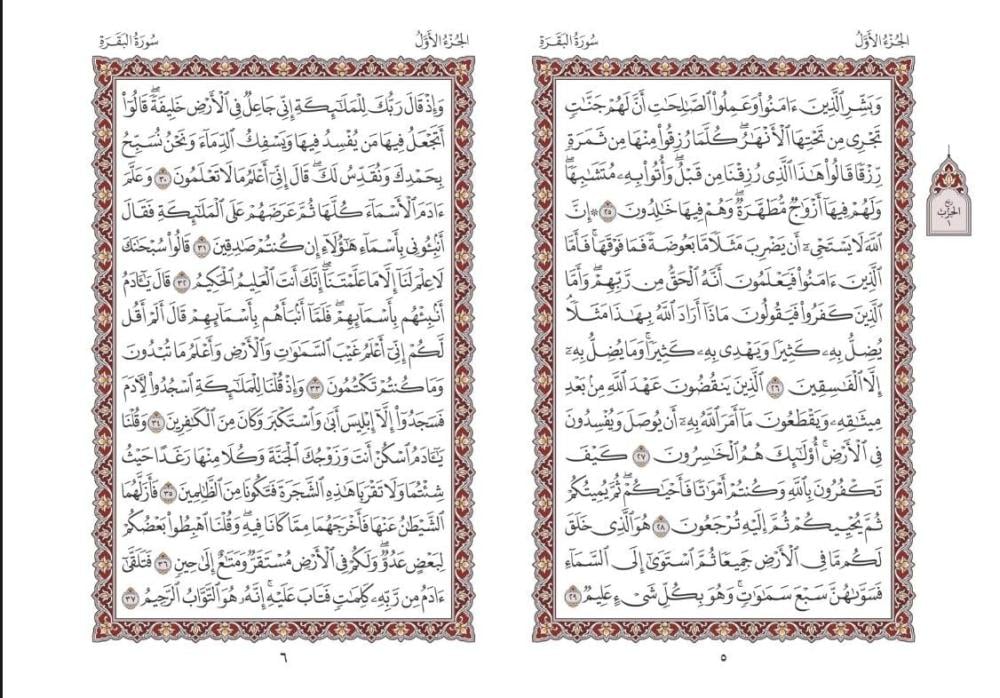 الجزء الأول
سورة البقرة
وَبَشِّرِ ٱلَّذِينَ ءَامَنُوا۟ وَعَمِلُوا۟ ٱلصَّٰلِحَٰتِ أَنَّ لَهُمْ جَنَّٰتٍ
تَجْرِى مِن تَحْتِهَا ٱلْأَنْهَٰرُ ۖ كُلَّمَا رُزِقُوا۟ مِنْهَا مِن ثَمَرَةٍ
رِّزْقًا قَالُوا۟ هَٰذَا ٱلَّذِى رُزِقْنَا مِن قَبْلُ ۖ وَأُتُوا۟ بِهِۦ مُتَشَٰبِهًا ۖ
وَلَهُمْ فِيهَآ أَزْوَٰجٌ مُّطَهَّرَةٌ ۖ وَهُمْ فِيهَا خَٰلِدُونَ ٢٥ ۞ إِنَّ
ٱللَّهَ لَا يَسْتَحْىِۦٓ أَن يَضْرِبَ مَثَلًا مَّا بَعُوضَةً فَمَا فَوْقَهَا ۚ فَأَمَّا
ٱلَّذِينَ ءَامَنُوا۟ فَيَعْلَمُونَ أَنَّهُ ٱلْحَقُّ مِن رَّبِّهِمْ ۖ وَأَمَّا
ٱلَّذِينَ كَفَرُوا۟ فَيَقُولُونَ مَاذَآ أَرَادَ ٱللَّهُ بِهَٰذَا مَثَلًا ۘ
يُضِلُّ بِهِۦ كَثِيرًا وَيَهْدِى بِهِۦ كَثِيرًا ۚ وَمَا يُضِلُّ بِهِۦٓ
إِلَّا ٱلْفَٰسِقِينَ ٢٦ ٱلَّذِينَ يَنقُضُونَ عَهْدَ ٱللَّهِ مِنۢ بَعْدِ
مِيثَٰقِهِۦ وَيَقْطَعُونَ مَآ أَمَرَ ٱللَّهُ بِهِۦٓ أَن يُوصَلَ وَيُفْسِدُونَ
فِى ٱلْأَرْضِ ۚ أُو۟لَٰٓئِكَ هُمُ ٱلْخَٰسِرُونَ ٢٧ كَيْفَ
تَكْفُرُونَ بِٱللَّهِ وَكُنتُمْ أَمْوَٰتًا فَأَحْيَٰكُمْ ۖ ثُمَّ يُمِيتُكُمْ
ثُمَّ يُحْيِيكُمْ ثُمَّ إِلَيْهِ تُرْجَعُونَ ٢٨ هُوَ ٱلَّذِى خَلَقَ
لَكُم مَّا فِى ٱلْأَرْضِ جَمِيعًا ثُمَّ ٱسْتَوَىٰٓ إِلَى ٱلسَّمَآءِ
فَسَوَّىٰهُنَّ سَبْعَ سَمَٰوَٰتٍ ۚ وَهُوَ بِكُلِّ شَىْءٍ عَلِيمٌ ٢٩
٥
ربع
الحزب
١
الجزء الأول
سورة البقرة
وَإِذْ قَالَ رَبُّكَ لِلْمَلَٰٓئِكَةِ إِنِّى جَاعِلٌ فِى ٱلْأَرْضِ خَلِيفَةً ۖ قَالُوٓا۟
أَتَجْعَلُ فِيهَا مَن يُفْسِدُ فِيهَا وَيَسْفِكُ ٱلدِّمَآءَ وَنَحْنُ نُسَبِّحُ
بِحَمْدِكَ وَنُقَدِّسُ لَكَ ۖ قَالَ إِنِّىٓ أَعْلَمُ مَا لَا تَعْلَمُونَ ٣٠ وَعَلَّمَ
ءَادَمَ ٱلْأَسْمَآءَ كُلَّهَا ثُمَّ عَرَضَهُمْ عَلَى ٱلْمَلَٰٓئِكَةِ فَقَالَ
أَنۢبِـُٔونِى بِأَسْمَآءِ هَٰٓؤُلَآءِ إِن كُنتُمْ صَٰدِقِينَ ٣١ قَالُوا۟ سُبْحَٰنَكَ
لَا عِلْمَ لَنَآ إِلَّا مَا عَلَّمْتَنَآ ۖ إِنَّكَ أَنتَ ٱلْعَلِيمُ ٱلْحَكِيمُ ٣٢ قَالَ يَٰٓـَٔادَمُ
أَنۢبِئْهُم بِأَسْمَآئِهِمْ ۖ فَلَمَّآ أَنۢبَأَهُم بِأَسْمَآئِهِمْ قَالَ أَلَمْ أَقُل
لَّكُمْ إِنِّىٓ أَعْلَمُ غَيْبَ ٱلسَّمَٰوَٰتِ وَٱلْأَرْضِ وَأَعْلَمُ مَا تُبْدُونَ
وَمَا كُنتُمْ تَكْتُمُونَ ٣٣ وَإِذْ قُلْنَا لِلْمَلَٰٓئِكَةِ ٱسْجُدُوا۟ لِـَٔادَمَ
فَسَجَدُوٓا۟ إِلَّآ إِبْلِيسَ أَبَىٰ وَٱسْتَكْبَرَ وَكَانَ مِنَ ٱلْكَٰفِرِينَ ٣٤ وَقُلْنَا
يَٰٓـَٔادَمُ ٱسْكُنْ أَنتَ وَزَوْجُكَ ٱلْجَنَّةَ وَكُلَا مِنْهَا رَغَدًا حَيْثُ
شِئْتُمَا وَلَا تَقْرَبَا هَٰذِهِ ٱلشَّجَرَةَ فَتَكُونَا مِنَ ٱلظَّٰلِمِينَ ٣٥ فَأَزَلَّهُمَا
ٱلشَّيْطَٰنُ عَنْهَا فَأَخْرَجَهُمَا مِمَّا كَانَا فِيهِ ۖ وَقُلْنَا ٱهْبِطُوا۟ بَعْضُكُمْ
لِبَعْضٍ عَدُوٌّ ۖ وَلَكُمْ فِى ٱلْأَرْضِ مُسْتَقَرٌّ وَمَتَٰعٌ إِلَىٰ حِينٍ ٣٦ فَتَلَقَّىٰٓ
ءَادَمُ مِن رَّبِّهِۦ كَلِمَٰتٍ فَتَابَ عَلَيْهِ ۚ إِنَّهُۥ هُوَ ٱلتَّوَّابُ ٱلرَّحِيمُ ٣٧
٦